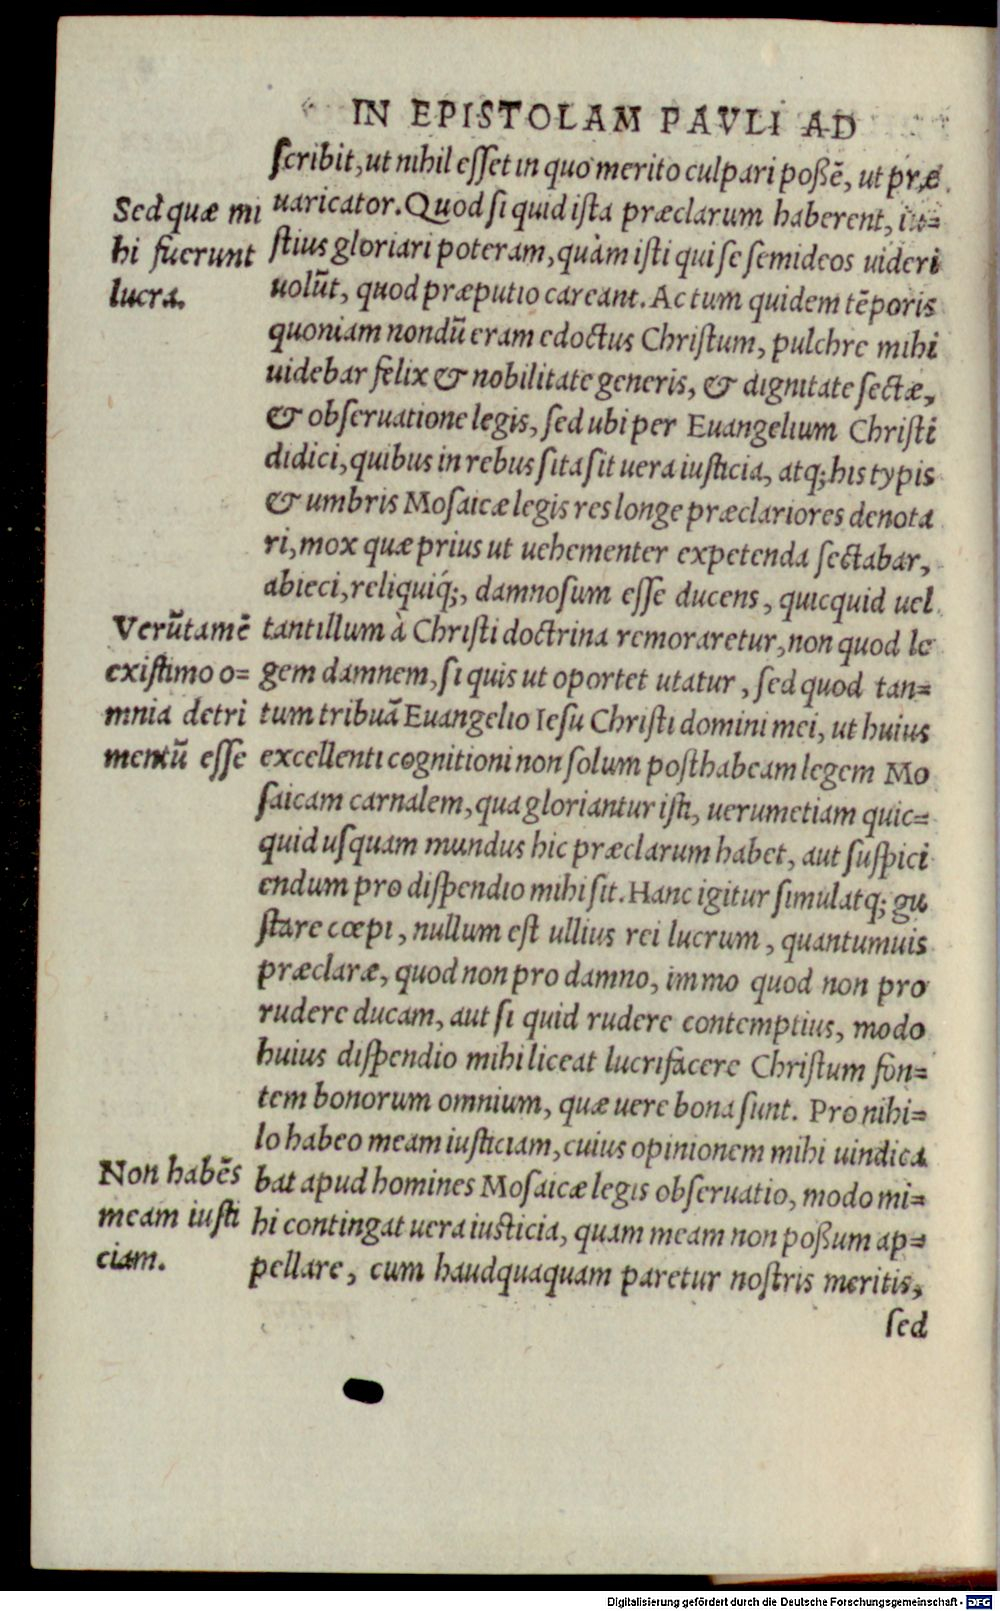 IN EPISTOLAM PAVLI AD
scribit, ut nihil esset in quo merito culpari poßẽ, ut præ
uaricator. Quod si quid ista præclarum haberent, iu=
stius gloriari poteram, quàm isti qui se semideos uideri
uolũt, quod præputio careant. Ac tum quidem tẽporis
quoniam nondũ eram edoctus Christum, pulchre mihi
uidebar felix & nobilitate generis, & dignitate sectæ,
& obseruatione legis, sed ubi per Euangelium Christi
didici, quibus in rebus sita sit uera iusticia, atq; his typis
& umbris Mosaicæ legis res longe præclariores denota
ri, mox quæ prius ut uehementer expetenda sectabar,
abieci, reliquiq́;, damnosum esse ducens, quicquid uel
tantillum à Christi doctrina remoraretur, non quod le
gem damnem, si quis ut oportet utatur, sed quod tan=
tum tribuã Euangelio Iesu Christi domini mei, ut huius
excellenti cognitioni non solum posthabeam legem Mo
saicam carnalem, qua gloriantur isti, uerumetiam quic=
quid usquam mundus hic præclarum habet, aut suspici
endum pro dispendio mihi sit. Hanc igitur simulatq; gu
stare cœpi, nullum est ullius rei lucrum, quantumuis
præclaræ, quod non pro damno, immo quod non pro
rudere ducam, aut si quid rudere contemptius, modo
huius dispendio mihi liceat lucrifacere Christum fon=
tem bonorum omnium, quæ uere bona sunt. Pro nihi=
lo habeo meam iusticiam, cuius opinionem mihi uindica
bat apud homines Mosaicæ legis obseruatio, modo mi=
hi contingat uera iusticia, quam meam non poßum ap=
pellare, cum haudquaquam paretur nostris meritis,
sed
Sed quæ mi
hi fuerunt
lucra.
Verũtamẽ
existimo o=
mnia detri
mentũ esse
Non habẽs
meam iusti
ciam.
Digitalisierung gefördert durch die Deutsche Forschungsgemeinschaft - DFG